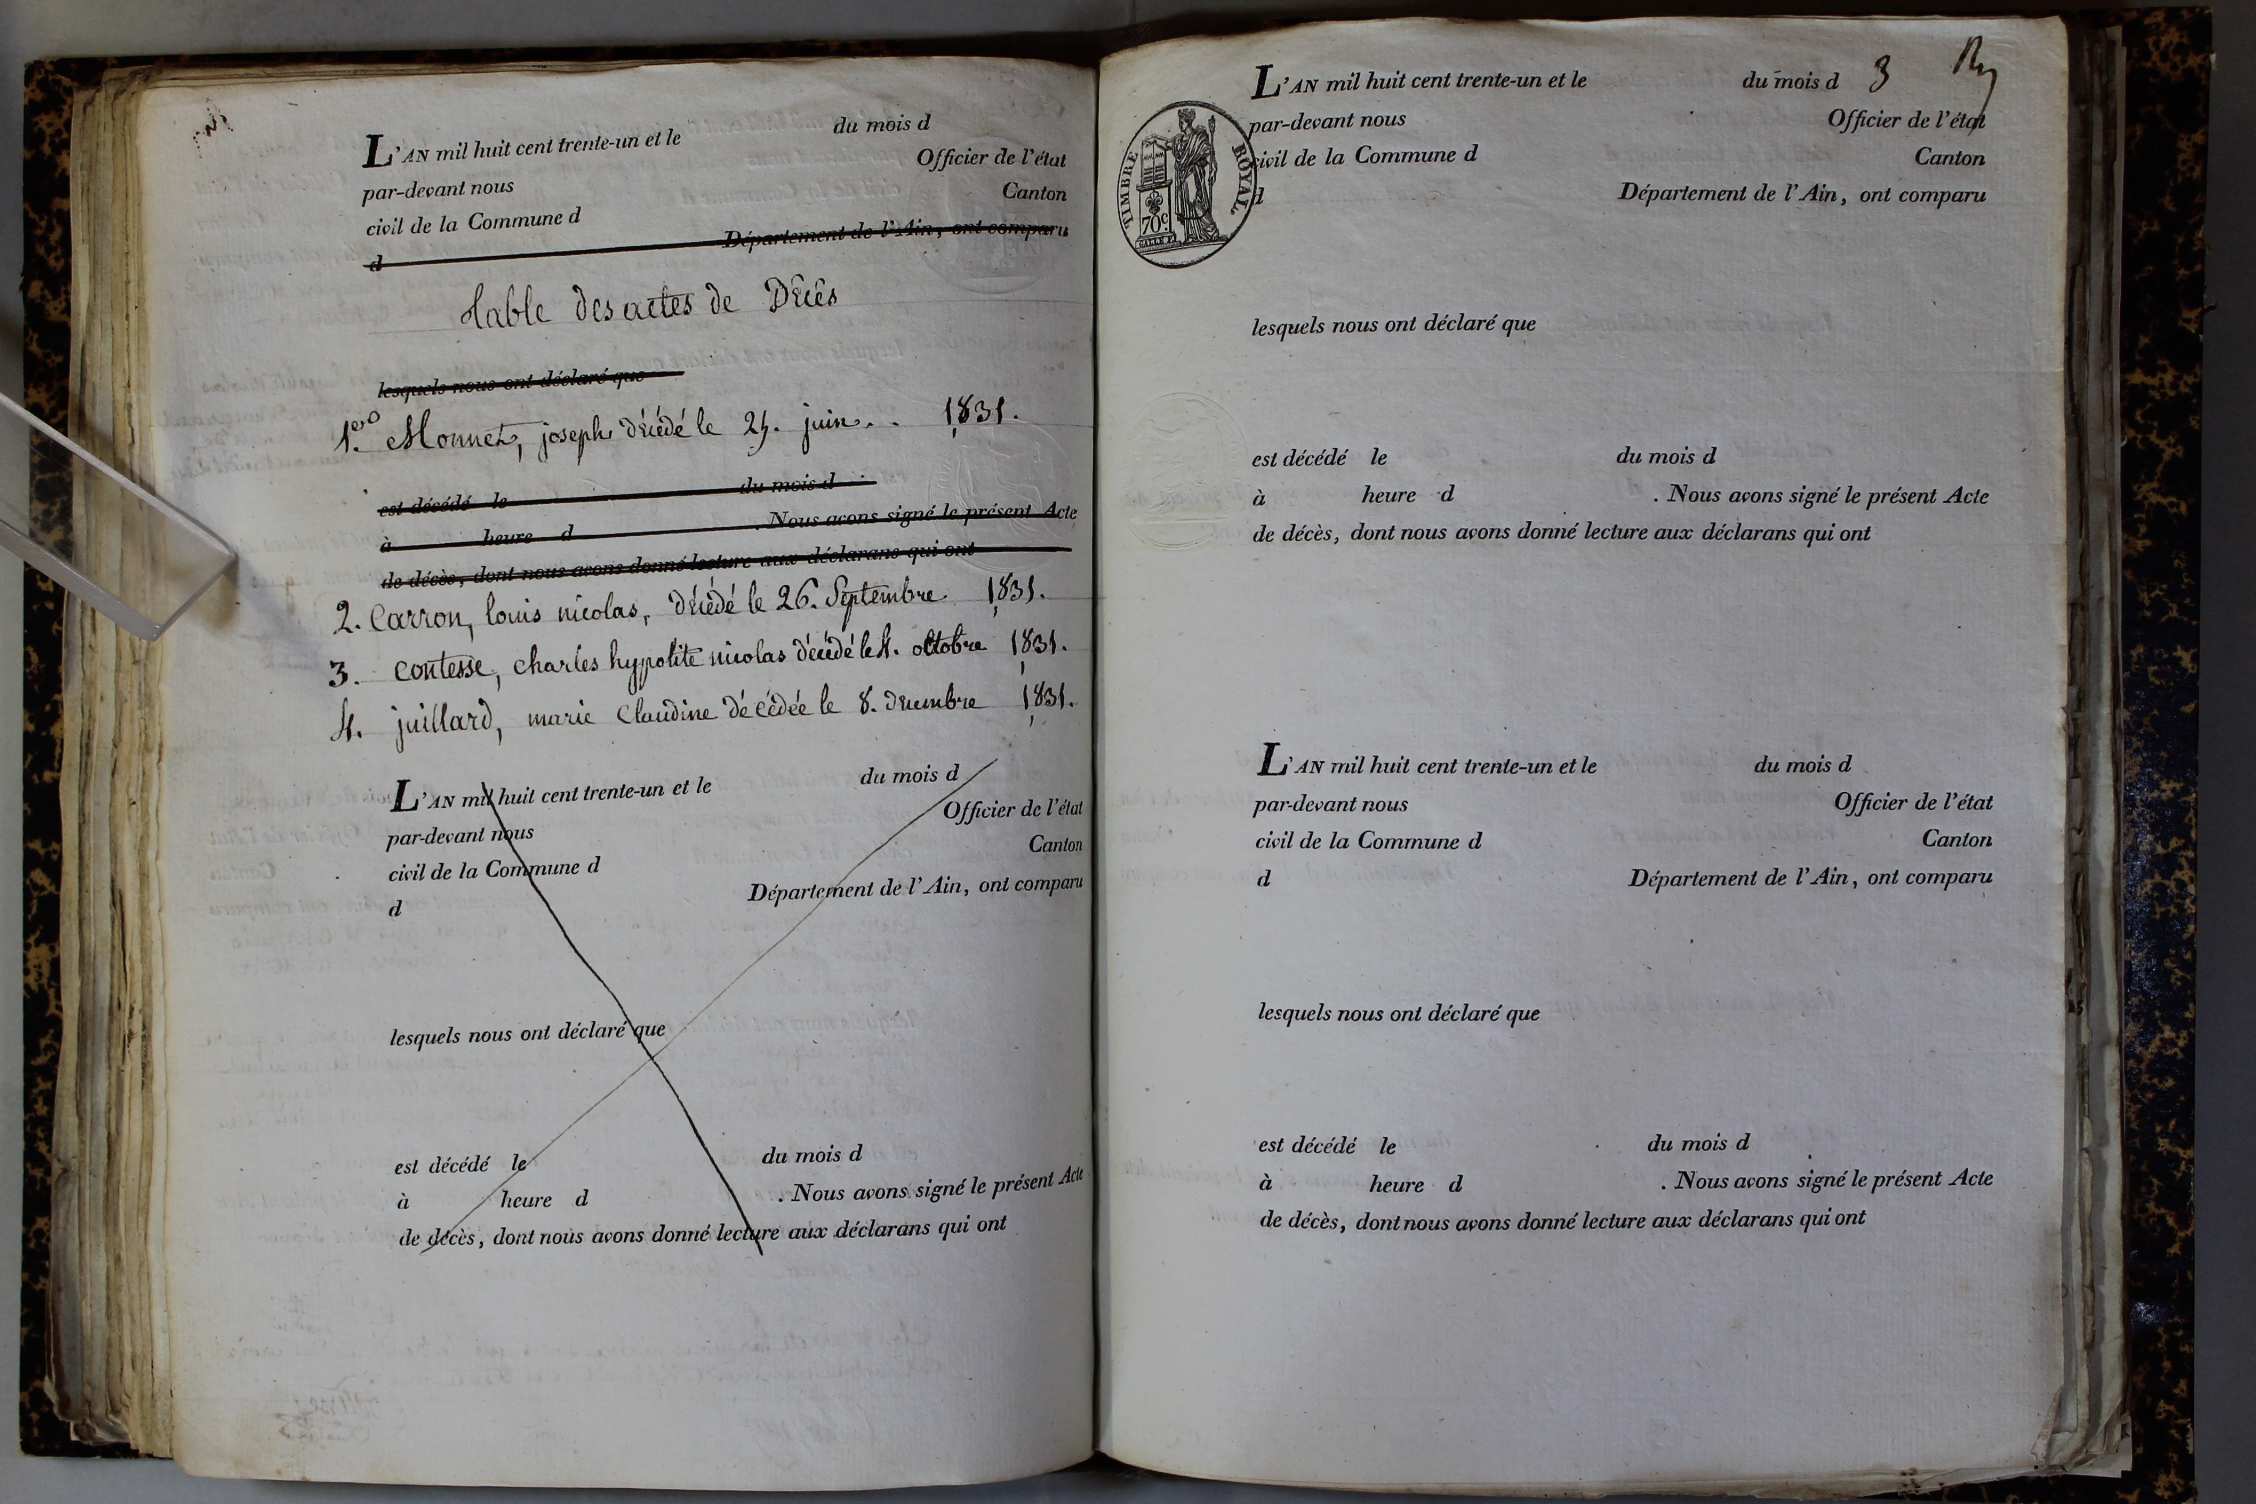 L'AN mil huit cent trente-un et le du mois d
par-devant nous Officier de l'état
civil de la Commune d Canton
d Département de l'Ain, ont comparu
Table des actes de Décès
lesquels nous ont déclaré que
1.ero Monnet, joseph décédé le 25. juin. . 1831.
est décédé le du mois d
à heure d . Nous avons signé le présent Acte
de décès, dont nous avons donné lecture aux déclarans qui ont
2. Carron, louis nicolas, décédé le 26. Septembre 1831.
3. contesse, charles hypolite nicolas décédé le 4. octobre 1831.
4. juillard, marie Claudine décédée le 8. decembre 1831.
L'AN mil huit cent trente-un et le du mois d
par-devant nous Officier de l'état
civil de la Commune d Canton
d Département de l'Ain, ont comparu
lesquels nous ont déclaré que
est décédé le du mois d
à heure d . Nous avons signé le présent Acte
de décès, dont nous avons donné lecture aux déclarans qui ont
3
L'AN mil huit cent trente-un et le du mois d
par-devant nous Officier de l'état
civil de la Commune d Canton
d Département de l'Ain, ont comparu
TIMBRE ROYAL
70c.
lesquels nous ont déclaré que
est décédé le du mois d
à heure d . Nous avons signé le présent Acte
de décès, dont nous avons donné lecture aux déclarans qui ont
L'AN mil huit cent trente-un et le du mois d
par-devant nous Officier de l'état
civil de la Commune d Canton
d Département de l'Ain, ont comparu
lesquels nous ont déclaré que
est décédé le du mois d
à heure d . Nous avons signé le présent Acte
de décès, dont nous avons donné lecture aux déclarans qui ont